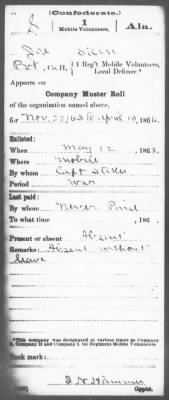 (Confederate.)
1
Mobile Volunteers,
Ala.
Pvt, Co. H, 1 Reg't Mobile Volunteers,
Local Defence.*
Appears on
Company Muster Roll
of the organization named above,
for Nov 22/63 to April 10, 1864.
Enlisted:
When May 12, 1863.
Where Mobile
By whom Capt
Period War
Last paid:
By whom Never Paid
To what time , 186 .
Present or absent Absent
Remarks: Absent without
leave
*This company was designated at various times as Company
Company H and Company I, 1st Regiment Mobile Volunteers
Book mark:
Copyist.